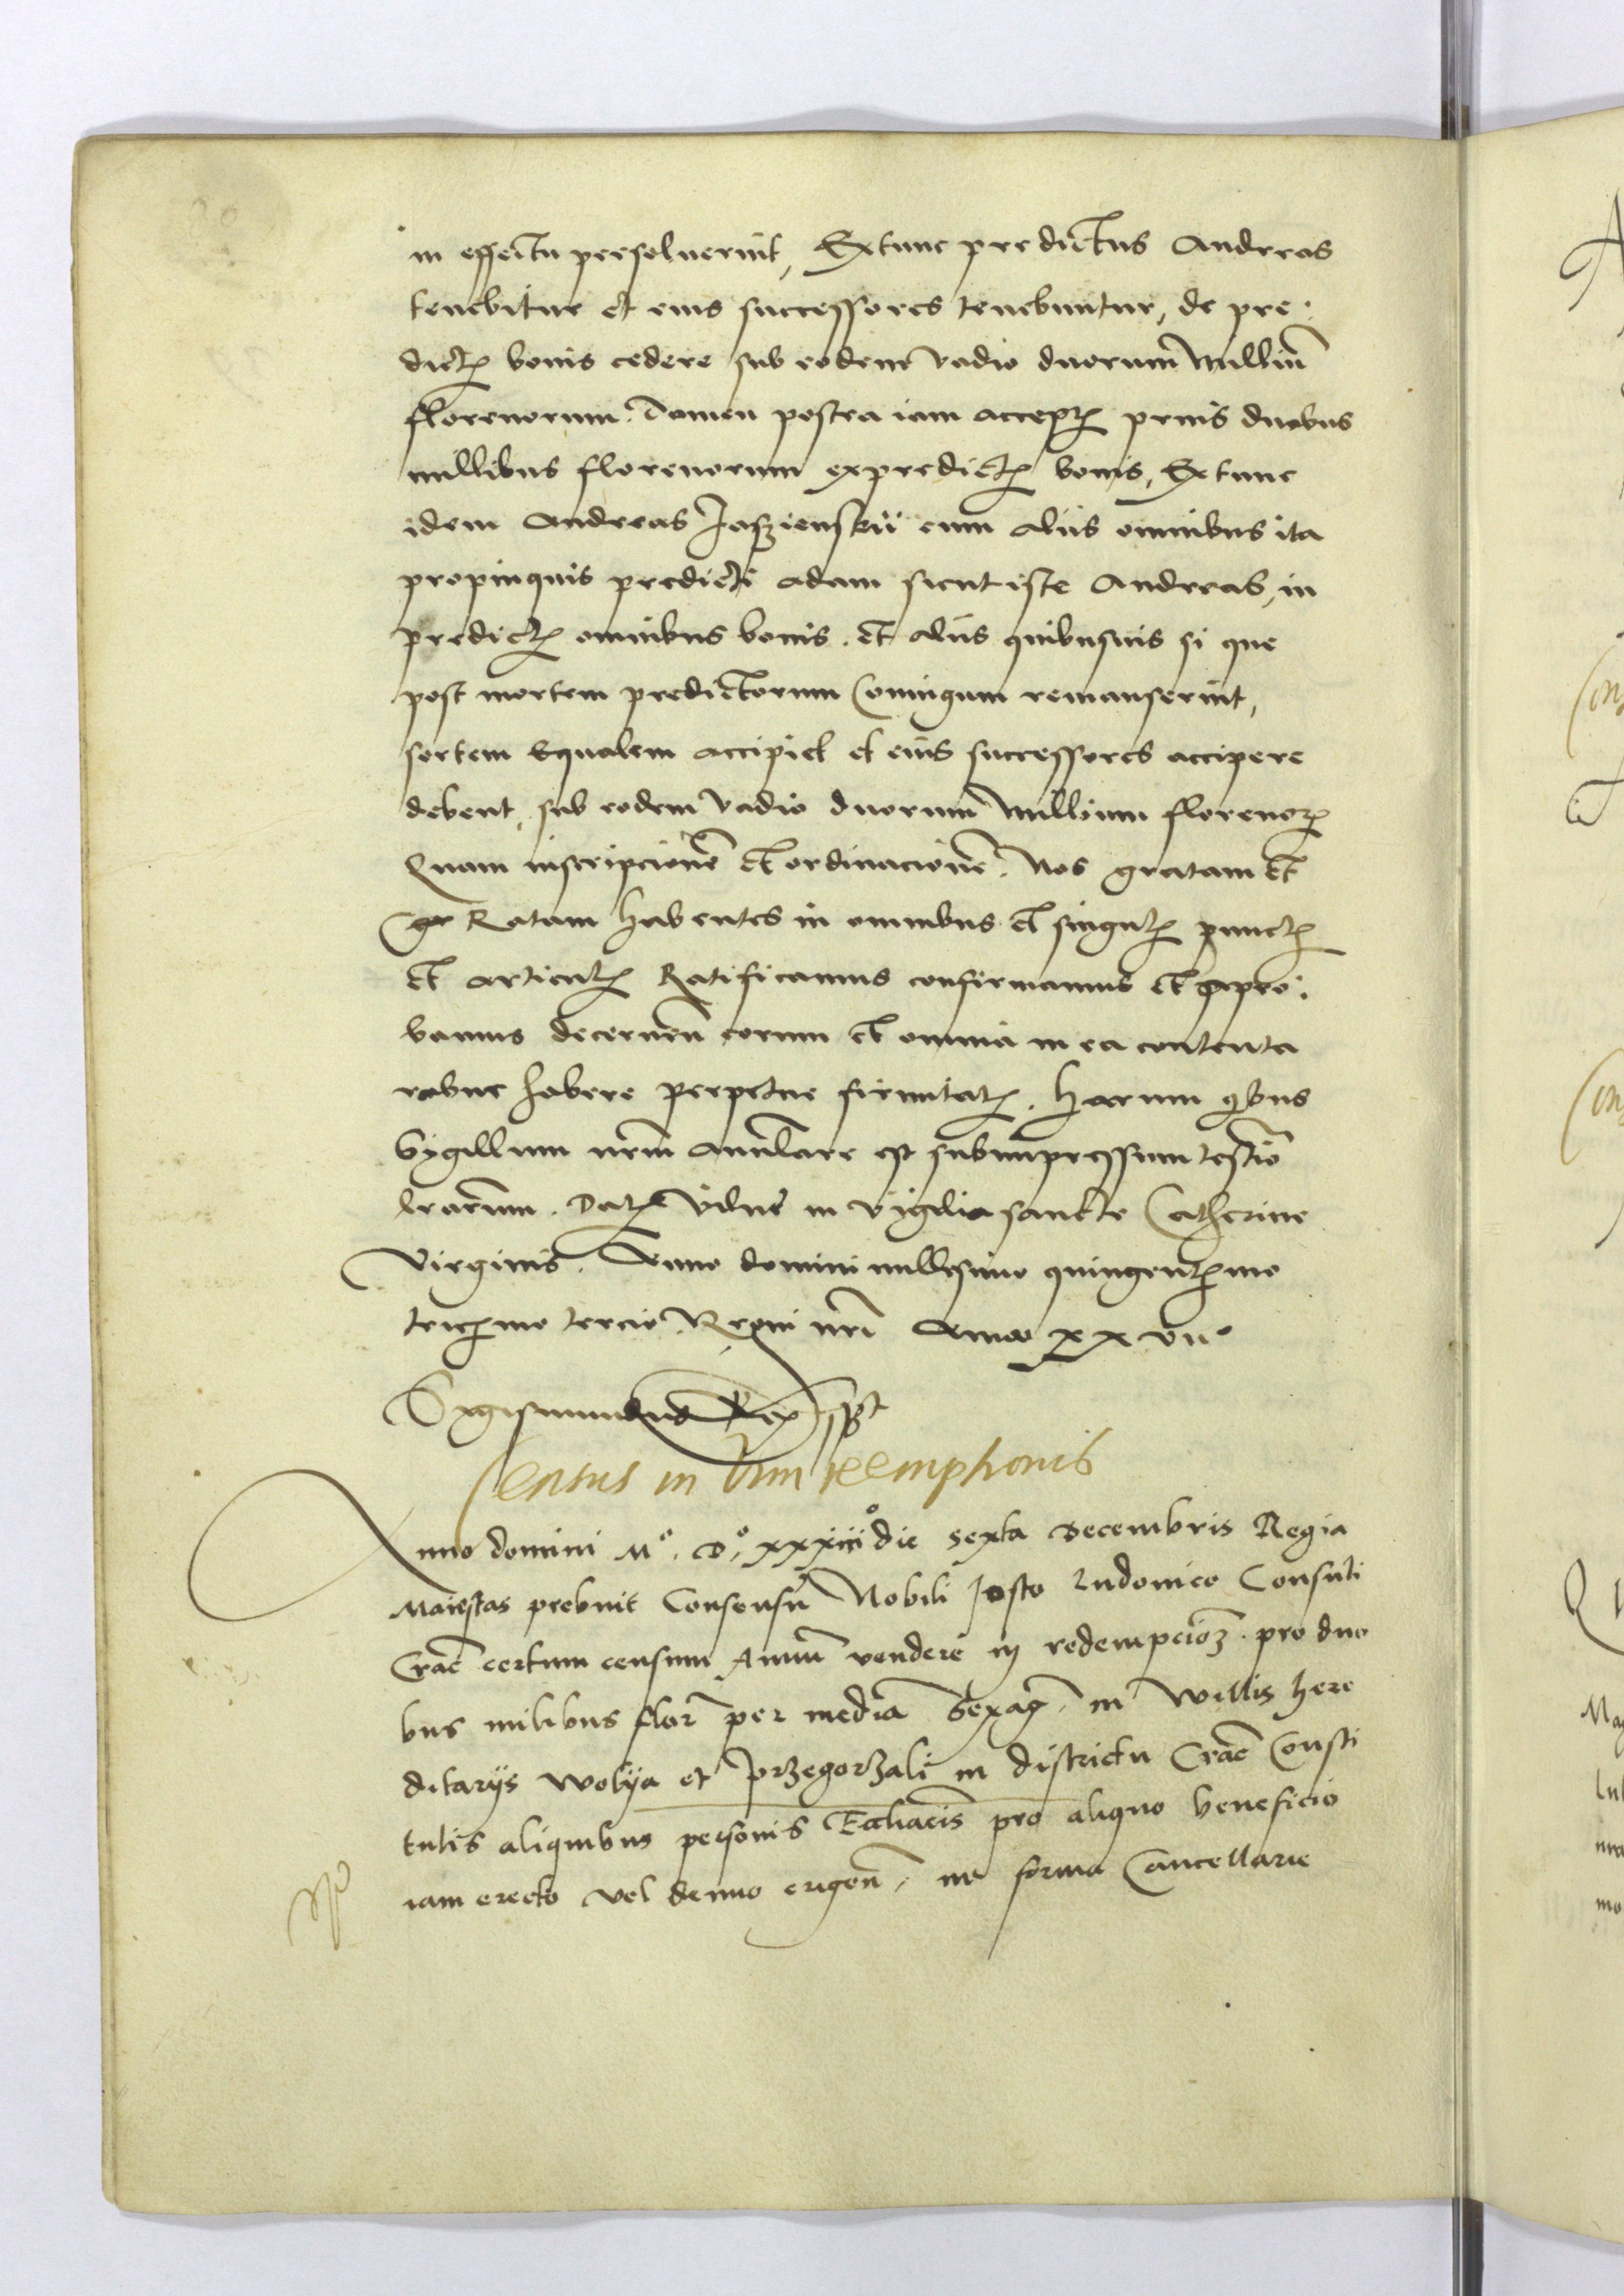 in effectu persolverint, Extunc predictus Andreas
tenebitur et eius successores tenebuntur, de pre:
dictꝫ bonis cedere sub eodem vadio duorum Milliū
florenorum. Tamen postea iam acceptꝫ prius duobus
millibus florenorum ex predictꝫ bonis, Extunc
idem Andreas Jaszienskii cum aliis omnibus ita
propinquis predicti Adam sicut iste Andreas, in
predictꝫ omnibus bonis. et aliis quibusuis si que
post mortem predictorum Coniugum remanserint,
sortem equalem accipiet et eius successores accipere
debent, sub eodem vadio duorum Millium florenorꝫ
Quam inscripcionē et ordinacionē. Nos gratam et
gr Ratam habentes in omnibus et singulꝫ punctꝫ
et articulꝫ Ratificamus confirmamus et appro:
bamus decernen̄ eorum et omnia in ea contenta
robur habere perpetue firmitatꝫ. Harum qbus
Sygillum nr̄m Annulare est subimpressum testīo
lrarum. Datꝫ Vilne in vigilia sancte Catherine
Virginis. Anno domini millesimo quingentꝫmo
tricꝫmo tercio Regni nr̄i Anno xxvii°
Sygismundus Rex sspt
Census in vim reemptionis
Anno domini M°. D°. xxxiii° die sexta Decembris Regia
Maiestas prebuit Consensū Nobili Josto Ludouico Consuli
Crac̄ certum censum Annuū vendere in redempcionꝫ. pro duo
bus milibus flor̄ per mediā Sexaḡ. in Willis here
ditarijs Wolya et Przegorzali in districtu Crac̄ Consti
tutis aliquibus personis Eccliacis pro aliquo beneficio
iam erecto vel denuo erigen̄. in forma Cancellarie